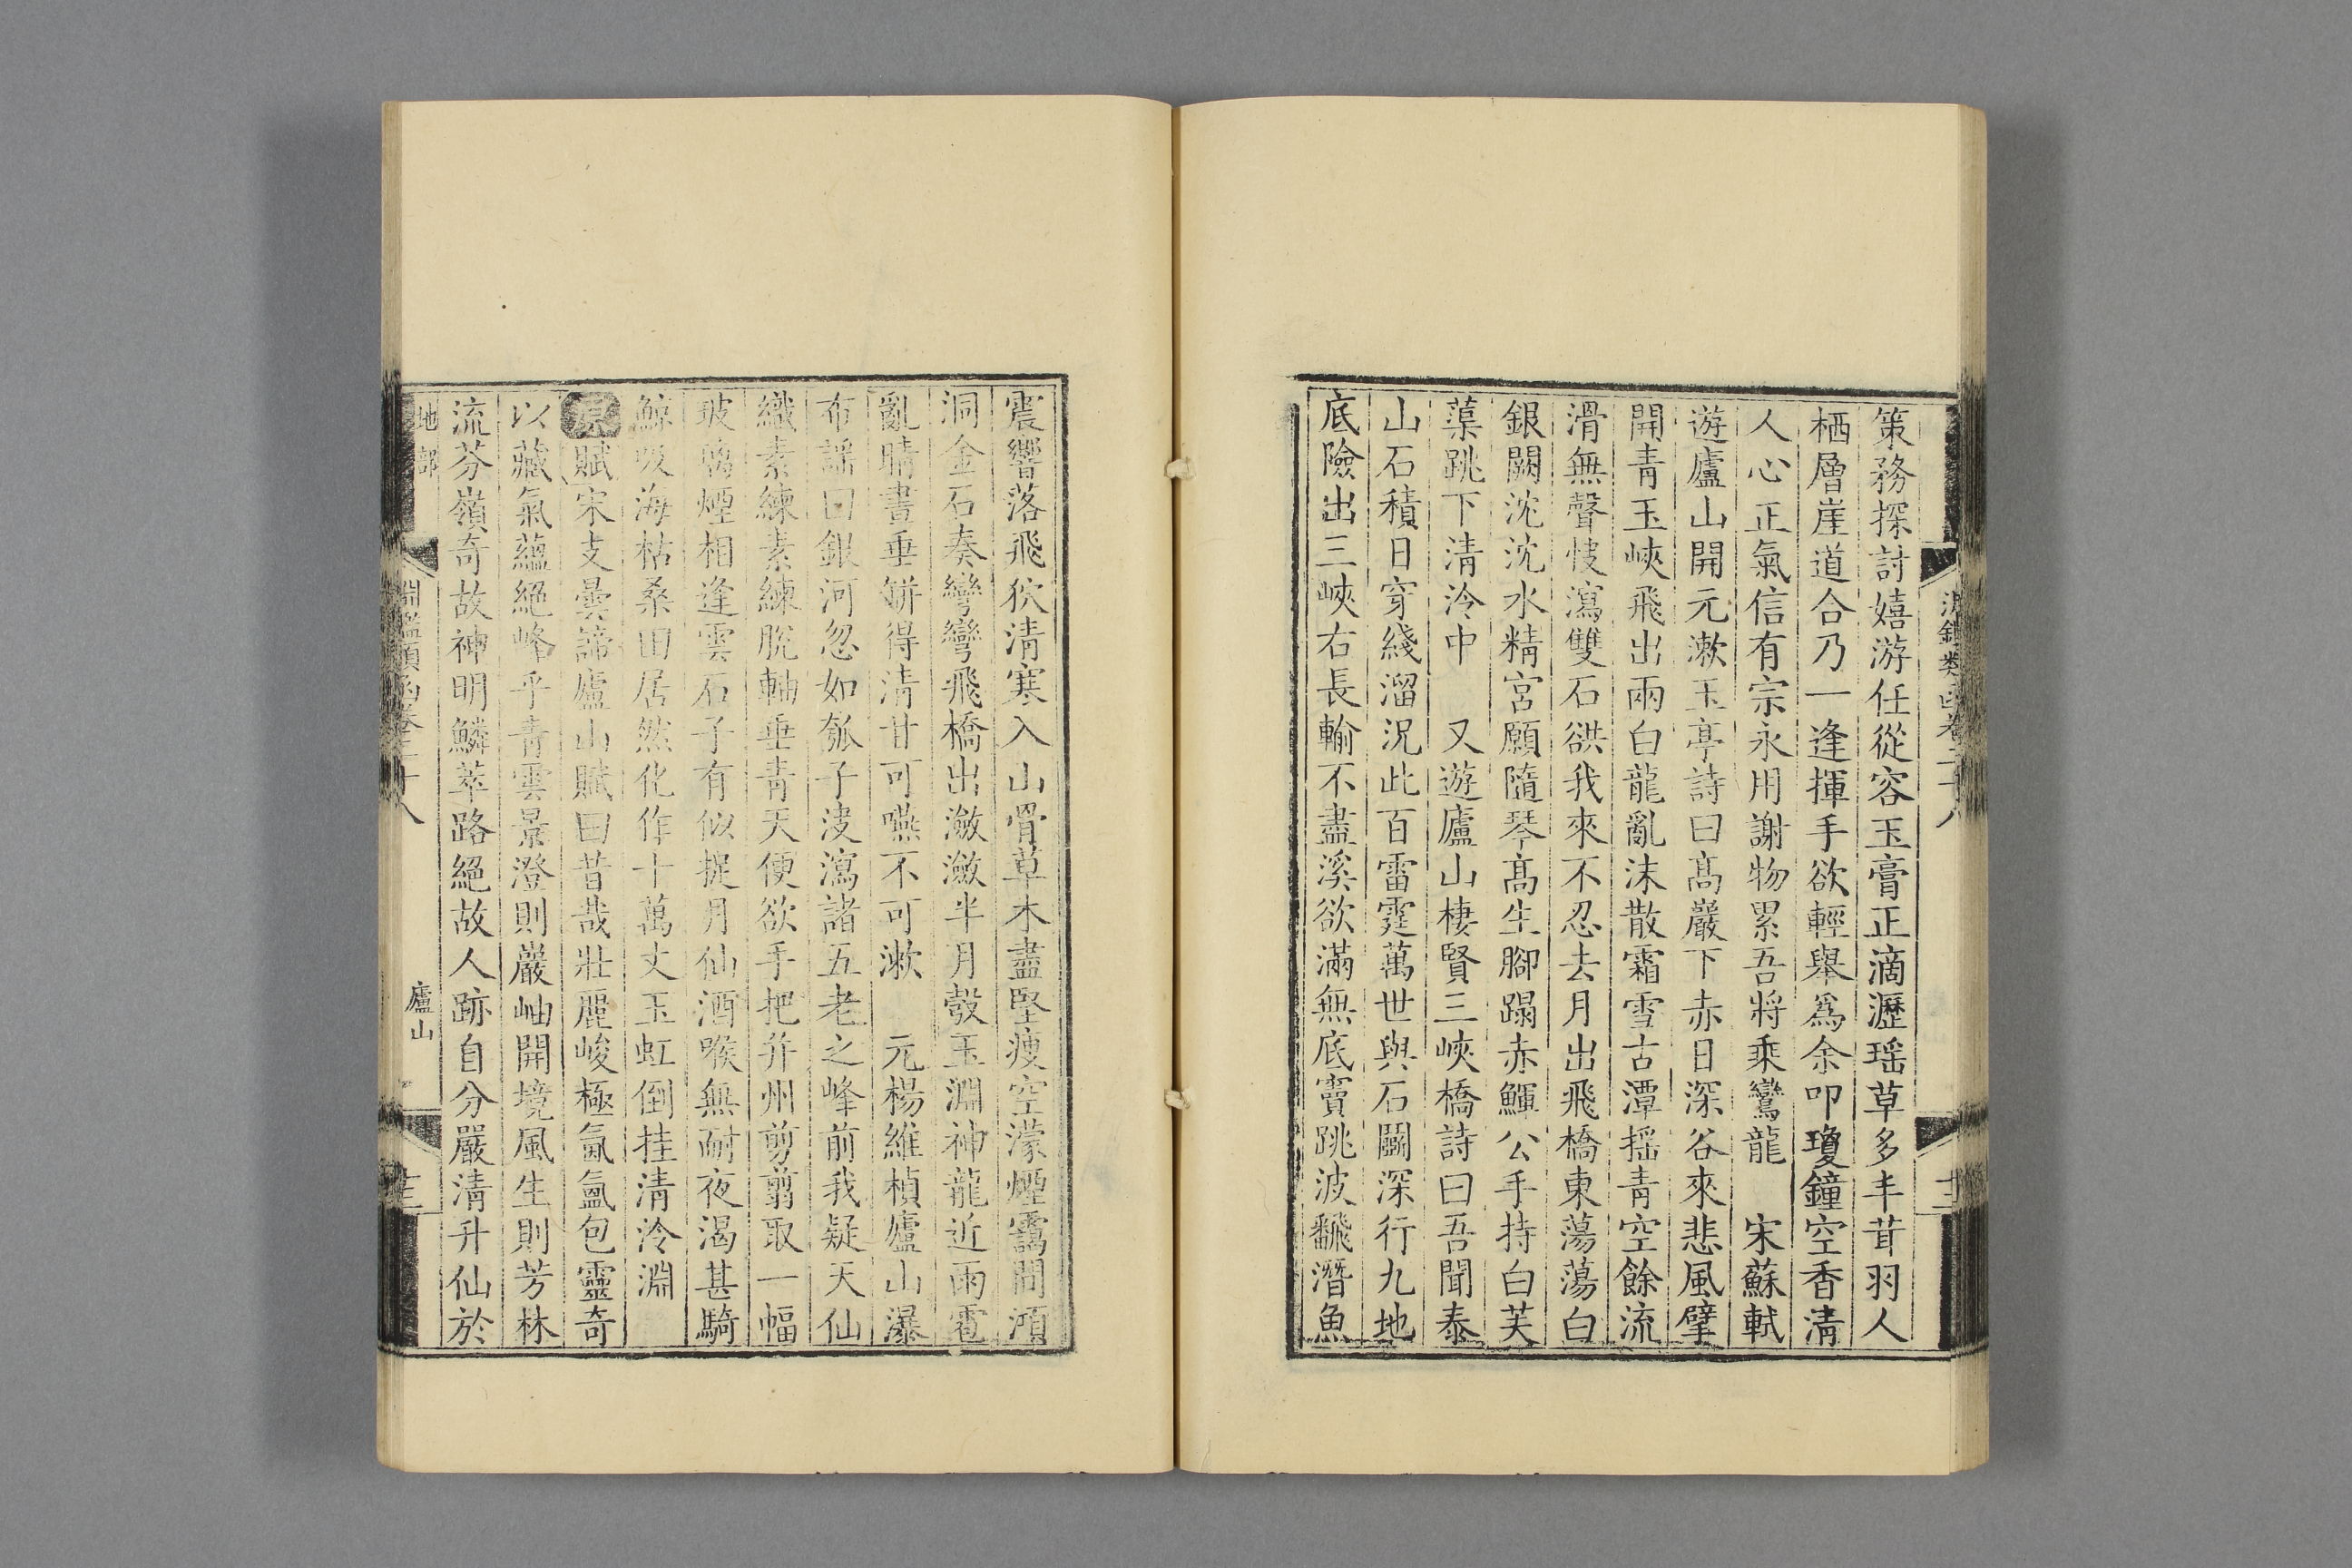 策務探討嬉游任從容玉膏正滴瀝瑶草多丰茸羽人
栖層崖道合乃一逢揮手欲輕舉爲余叩瓊鐘空香清
人心正氣信有宗永用謝物累吾將乘鸞龍　宋蘇軾
遊廬山開元漱玉亭詩曰髙巖下赤日深谷來悲風擘
開青玉峽飛出兩白龍亂沫散霜雪古潭揺青空餘流
滑無聲快瀉雙石谼我來不忍去月出飛橋東蕩蕩白
銀闕沈沈水精宮願隨琴髙生腳蹋赤鯶公手持白芙
蕖跳下清泠中　又遊廬山棲賢三峽橋詩曰吾聞泰
山石積日穿綫溜況此百雷霆萬世與石鬭深行九地
底險出三峽右長輸不盡溪欲滿無底竇跳波翻潛魚
震響落飛狖清寒入山骨草木盡堅瘦空濛煙靄間澒
洞金石奏彎彎飛橋出瀲瀲半月彀玉淵神龍近雨雹
亂晴晝垂缾得清甘可嚥不可漱　元楊維楨廬山瀑
布謡曰銀河忽如瓠子決瀉諸五老之峰前我疑天仙
織素練素練脱軸垂青天便欲手把并州剪剪取一幅
玻璃煙相逢雲石子有似捉月仙酒喉無耐夜渴甚騎
鯨吸海枯桑田居然化作十萬丈玉虹倒挂清泠淵
原賦宋支曇諦廬山賦曰昔哉壯麗峻極氤氳包靈奇
以藏氣蘊絕峰乎青雲景澄則巖岫開境風生則芳林
流芬嶺奇故神明鱗萃路絕故人跡自分嚴清升仙於
地部　淵鑑類函卷二十八　廬山